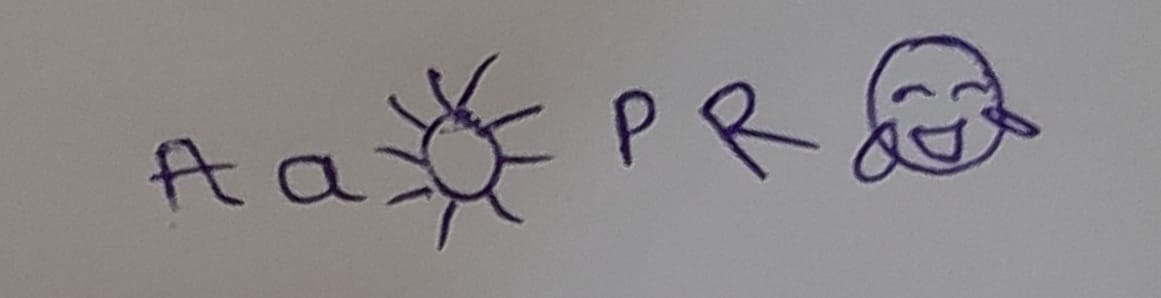 A a ☀ P R 😂